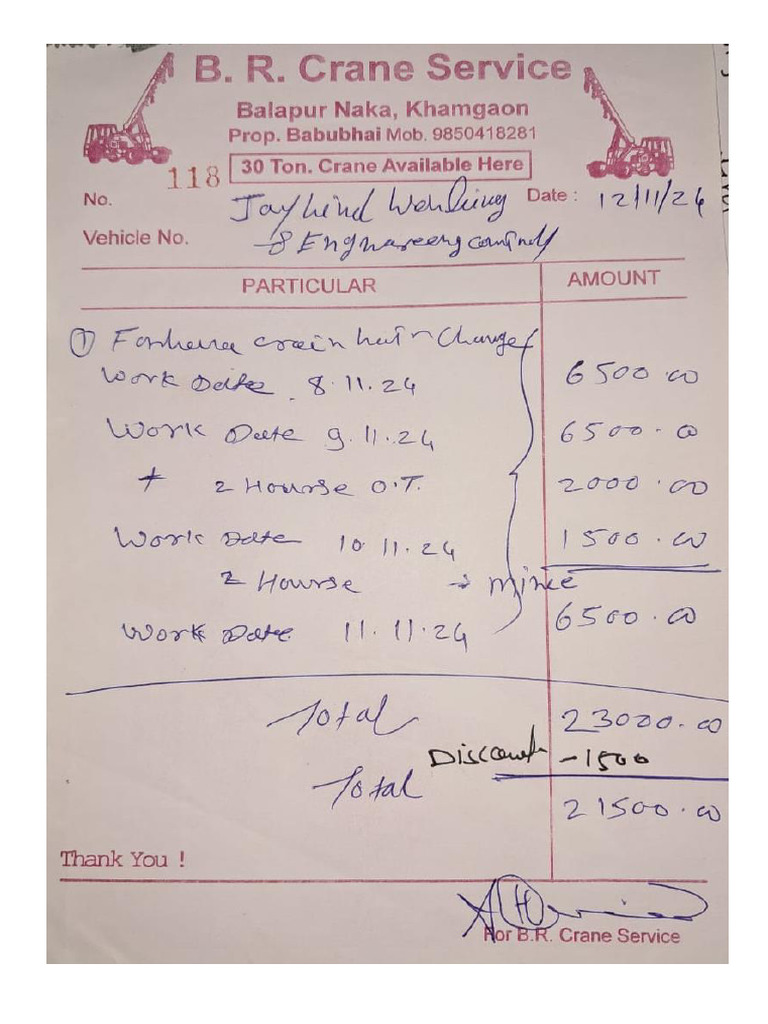 B. R. Crane Service
Balapur Naka, Khamgaon
Prop. Babubhai Mob. 9850418281
30 Ton. Crane Available Here
118
No. Jayhind Date : 12/11/24
Vehicle No. &
PARTICULAR AMOUNT
① crain Charge
Work Date 8.11.24 6500.00
Work Date 9.11.24 6500.00
+ 2 Hourse O.T. 2000.00
Work Date 10.11.24 1500.00
2 Hourse → mince
Work Date 11.11.24 6500.00
Total 23000.00
Discount -1500
Total 21500.00
Thank You !
For B.R. Crane Service